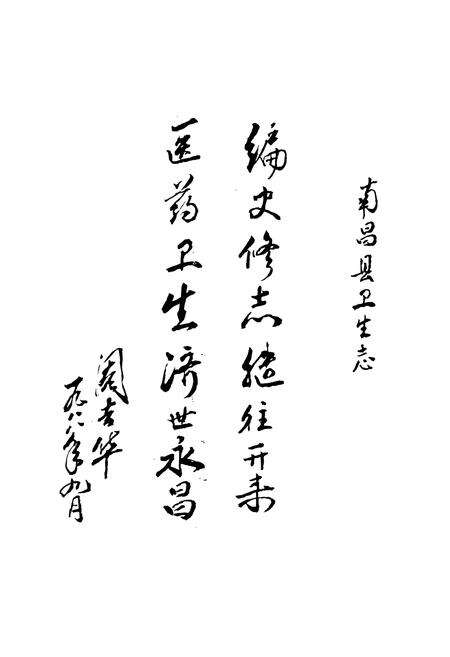 南昌县卫生志
编史修志继往开来
医药卫生济世永昌
阎吉华
一九八八年九月